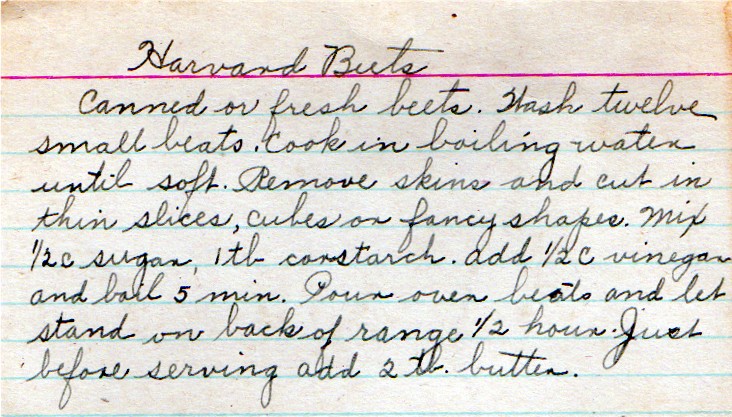 Harvard Beets
Canned or fresh beets. Wash twelve
small beats. Cook in boiling water
until soft. Remove skins and cut in
thin slices, cubes or fancy shapes. Mix
1/2 c sugar, 1 tb corstarch. add 1/2 c vinegar
and boil 5 min. Pour over beats and let
stand on back of range 1/2 hour. Just
before serving add 2 tb. butter.